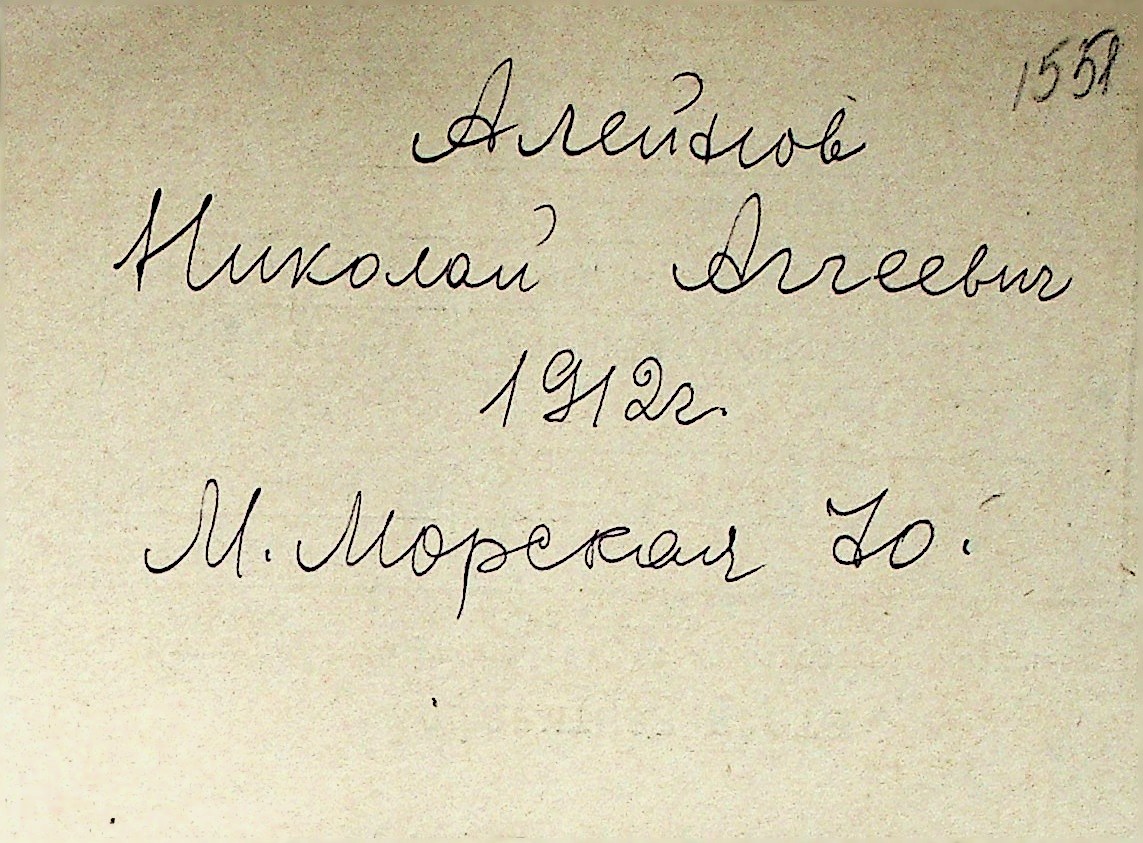 1551
Алейнов
Николай Аггеевич
1912г.
М. Морская Ю.